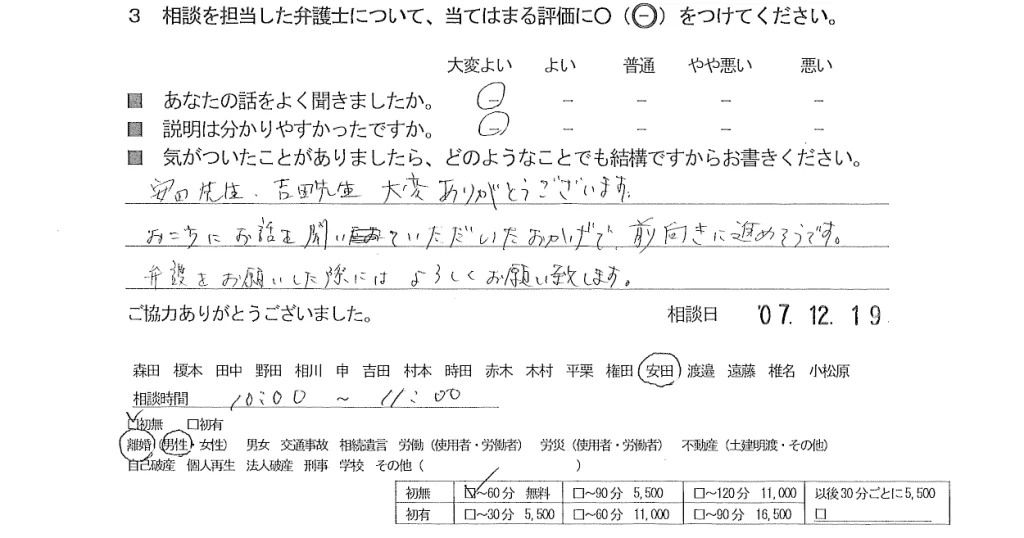 3 相談を担当した弁護士について、当てはまる評価に〇（㊀）をつけてください。
大変よい よい 普通 やや悪い 悪い
■ あなたの話をよく聞きましたか。 － － － － －
■ 説明は分かりやすかったですか。 － － － － －
■ 気がついたことがありましたら、どのようなことでも結構ですからお書きください。
安田先生、吉田先生 大変ありがとうございます。
お話を聞いていただいたおかげで、前向きに進めそうです。
弁護をお願いした際にはよろしくお願い致します。
ご協力ありがとうございました。 相談日 '07. 12. 19
森田 榎本 田中 野田 相川 申 吉田 村本 時田 赤木 木村 平栗 権田 安田 渡邉 遠藤 椎名 小松原
相談時間 10:00 ～ 11:00
□初無 □初有
離婚（男性・女性） 男女 交通事故 相続遺言 労働（使用者・労働者） 労災（使用者・労働者） 不動産（土建明渡・その他）
自己破産 個人再生 法人破産 刑事 学校 その他（ ）
初無 □～60分 無料 □～90分 5,500 □～120分 11,000 以後30分ごとに5,500
初有 □～30分 5,500 □～60分 11,000 □～90分 16,500 □